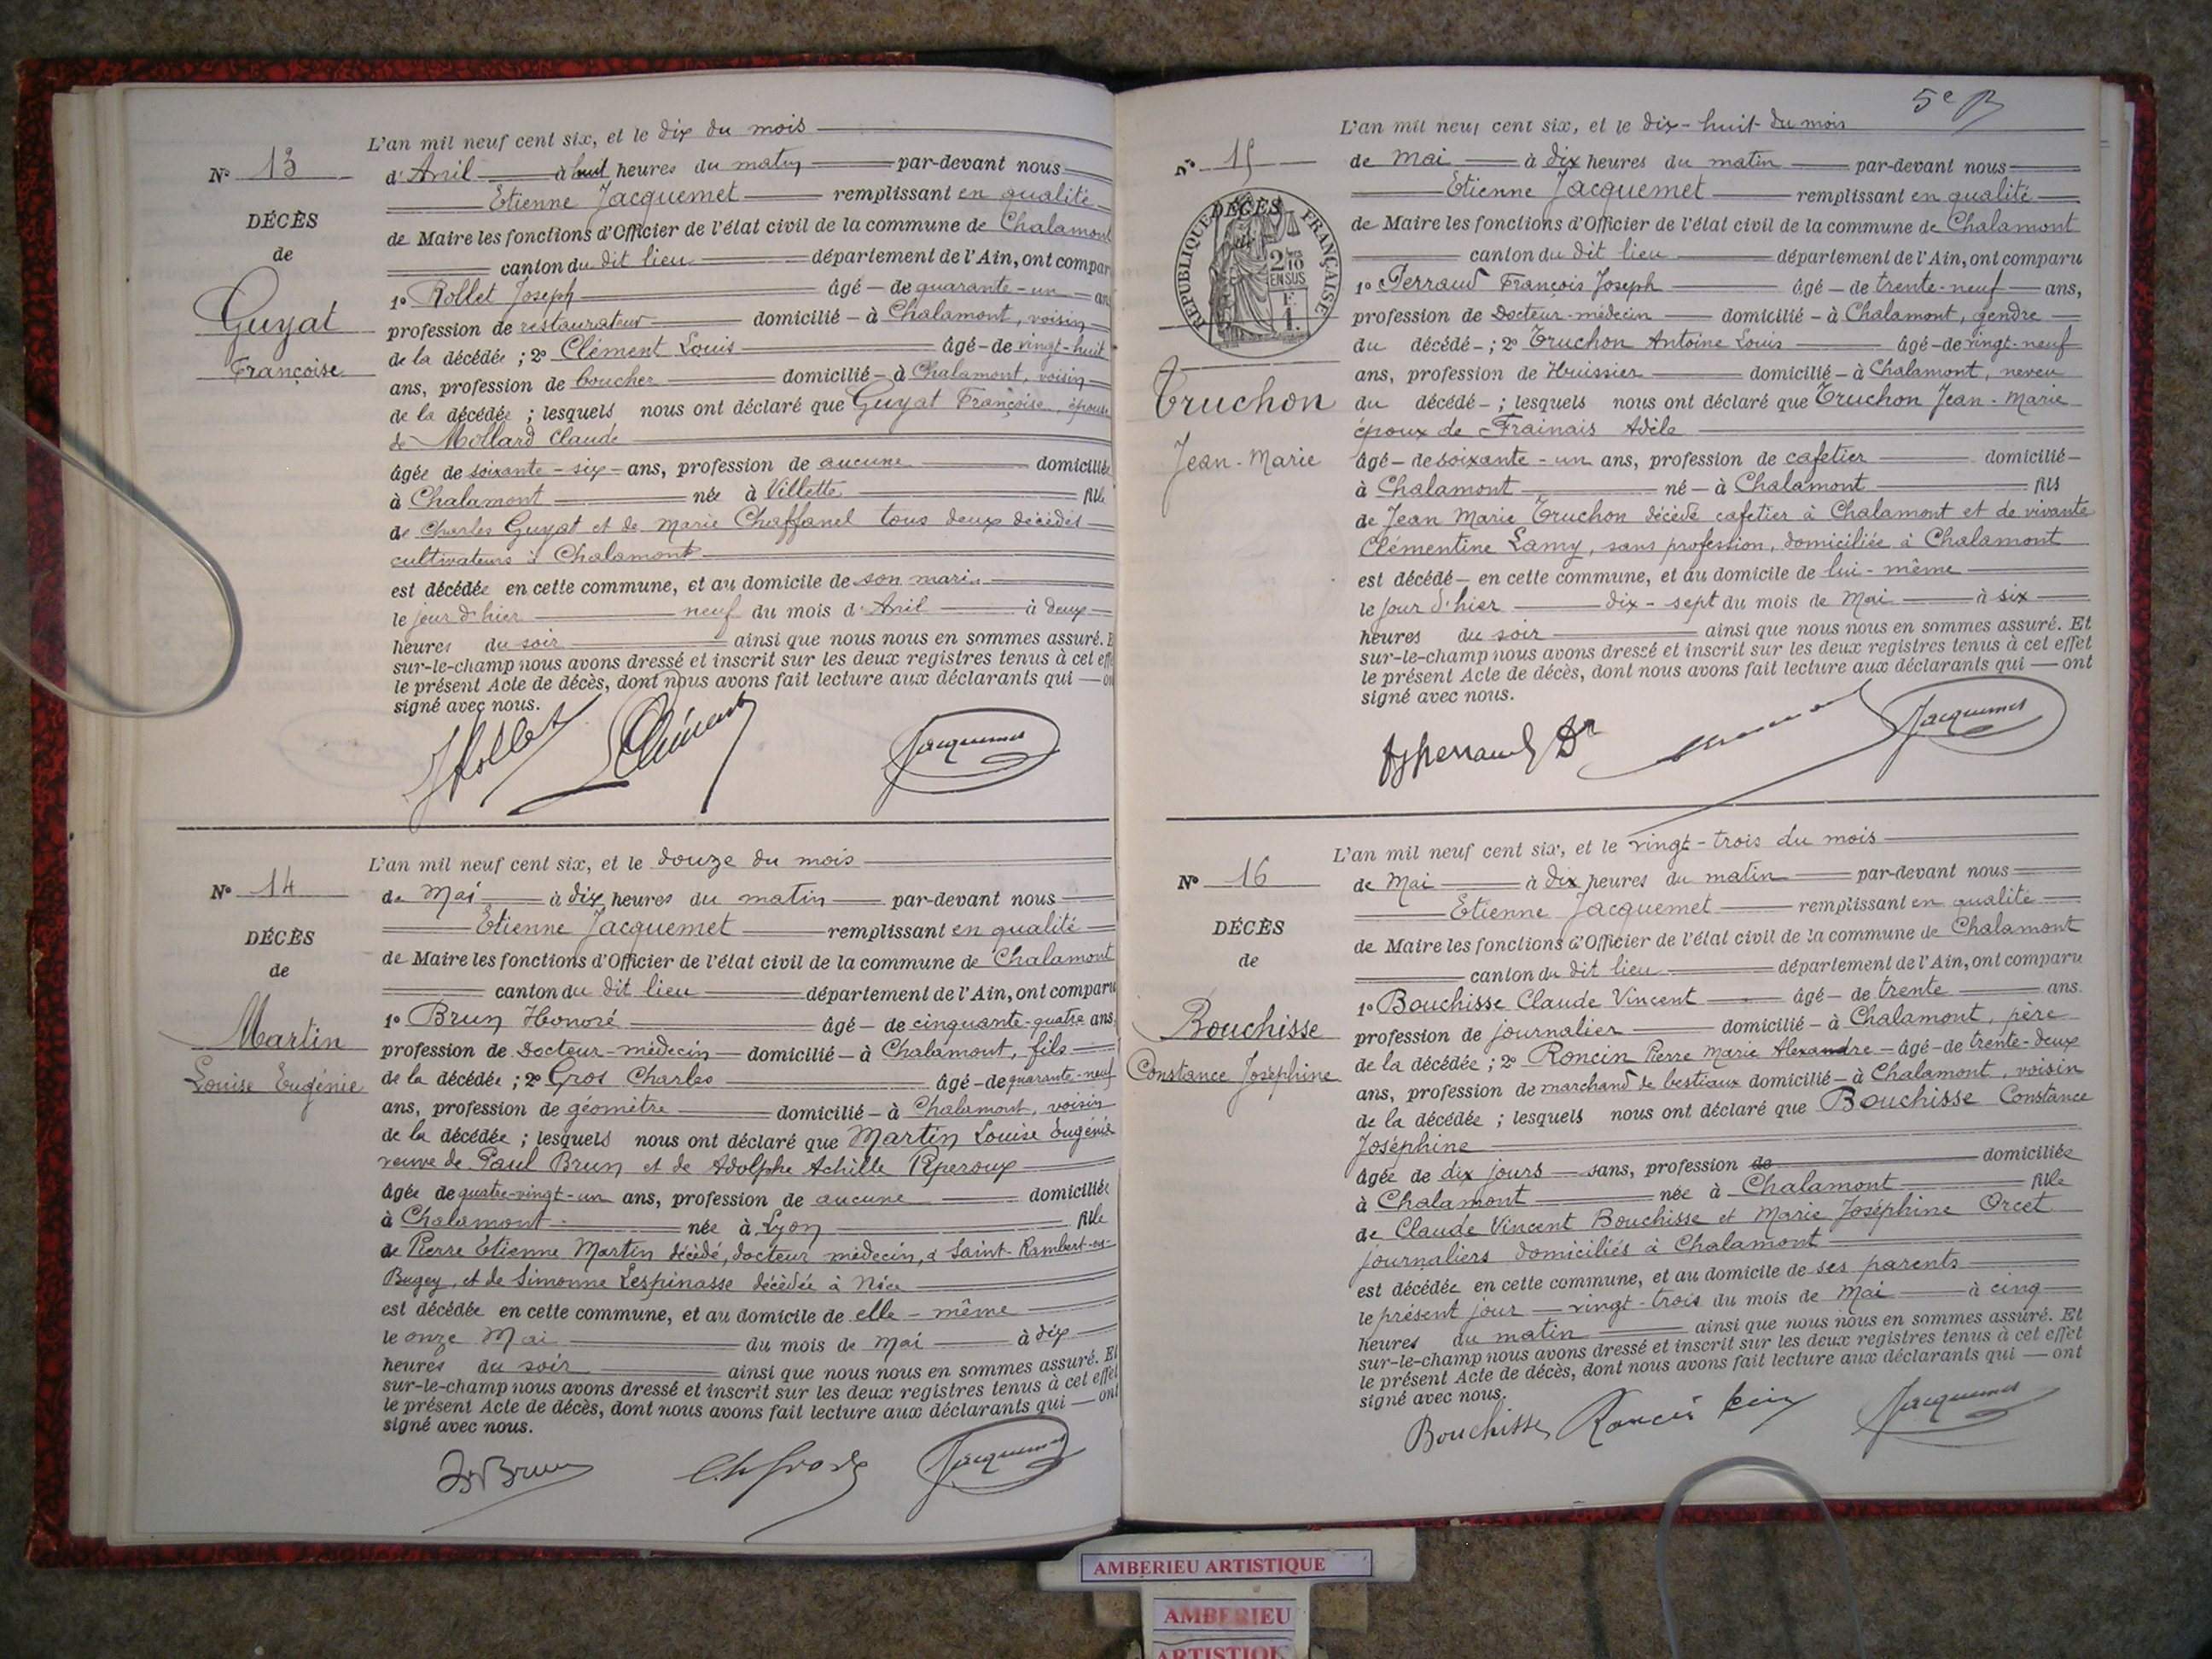 L'an mil neuf cent six, et le dix du mois
N° 13
d'Avril à huit heures du matin par-devant nous
Etienne Jacquemet remplissant en qualité
DÉCÈS
de Maire les fonctions d'Officier de l'état civil de la commune de Chalamont
de
canton du dit lieu département de l'Ain, ont compar
1° Rollet Joseph âgé de quarante-un an
Guyat
profession de restaurateur domicilié à Chalamont, voisin
Françoise
de la décédée ; 2° Clément Louis âgé de vingt-huit
ans, profession de boucher domicilié à Chalamont, voisin
de la décédée ; lesquels nous ont déclaré que Guyat Françoise, épouse
de Mollard Claude
âgée de soixante-six ans, profession de aucune domiciliée
à Chalamont née à Villette fille
de Charles Guyat et de Marie Chaffanel tous deux décédés
cultivateurs à Chalamont
est décédée en cette commune, et au domicile de son mari
le jour d'hier neuf du mois d'Avril à deux
heures du soir ainsi que nous nous en sommes assuré. E
sur-le-champ nous avons dressé et inscrit sur les deux registres tenus à cet effe
le présent Acte de décès, dont nous avons fait lecture aux déclarants qui — on
signé avec nous.
JRollet LClément Jacquemet
L'an mil neuf cent six, et le douze du mois
N° 14
de Mai à dix heures du matin par-devant nous
Etienne Jacquemet remplissant en qualité
DÉCÈS
de Maire les fonctions d'Officier de l'état civil de la commune de Chalamont
de
canton du dit lieu département de l'Ain, ont comparu
1° Brun Honoré âgé de cinquante-quatre ans
Martin
profession de Docteur-médecin domicilié à Chalamont, fils
Louise Eugénie
de la décédée ; 2° Gros Charles âgé de quarante-neuf
ans, profession de géomètre domicilié à Chalamont, voisin
de la décédée ; lesquels nous ont déclaré que Martin Louise Eugénie
veuve de Paul Brun et de Adolphe Achille Rperoux
âgée de quatre-vingt-un ans, profession de aucune domiciliée
à Chalamont née à Lyon fille
de Pierre Etienne Martin décédé, docteur médecin, à Saint-Rambert-en-
Bugey, et de Simonne Lespinasse décédée à Nice
est décédée en cette commune, et au domicile de elle-même
le onze Mai du mois de Mai à dix
heures du soir ainsi que nous nous en sommes assuré. Et
sur-le-champ nous avons dressé et inscrit sur les deux registres tenus à cet effet
le présent Acte de décès, dont nous avons fait lecture aux déclarants qui — ont
signé avec nous.
Brun Ch Gros Jacquemet
5e
L'an mil neuf cent six, et le dix-huit du mois
N° 15
de Mai à dix heures du matin par-devant nous
Etienne Jacquemet remplissant en qualité
DÉCÈS
de
RÉPUBLIQUE FRANÇAISE
2/10 EN SUS
F. 1.
de Maire les fonctions d'Officier de l'état civil de la commune de Chalamont
canton du dit lieu département de l'Ain, ont comparu
1° Perraud François Joseph âgé de trente-neuf ans,
profession de Docteur-médecin domicilié à Chalamont, gendre
du décédé ; 2° Truchon Antoine Louis âgé de vingt-neuf
Truchon
ans, profession de Huissier domicilié à Chalamont, neveu
du décédé ; lesquels nous ont déclaré que Truchon Jean-Marie
époux de Frainais Adèle
Jean-Marie
âgé de soixante-un ans, profession de cafetier domicilié
à Chalamont né à Chalamont fils
de Jean Marie Truchon décédé cafetier à Chalamont et de vivante
Clémentine Lamy, sans profession, domiciliée à Chalamont
est décédé en cette commune, et au domicile de lui-même
le jour d'hier dix-sept du mois de Mai à six
heures du soir ainsi que nous nous en sommes assuré. Et
sur-le-champ nous avons dressé et inscrit sur les deux registres tenus à cet effet
le présent Acte de décès, dont nous avons fait lecture aux déclarants qui — ont
signé avec nous.
Perraud Dr Jacquemet
L'an mil neuf cent six, et le vingt-trois du mois
N° 16
de Mai à dix heures du matin par-devant nous
Etienne Jacquemet remplissant en qualité
DÉCÈS
de Maire les fonctions d'Officier de l'état civil de la commune de Chalamont
de
canton du dit lieu département de l'Ain, ont comparu
1° Bouchisse Claude Vincent âgé de trente ans
Bouchisse
profession de journalier domicilié à Chalamont, père
Constance Joséphine
de la décédée ; 2° Roncin Pierre Marie Alexandre âgé de trente-deux
ans, profession de marchand de bestiaux domicilié à Chalamont, voisin
de la décédée ; lesquels nous ont déclaré que Bouchisse Constance
Joséphine
âgée de dix jours sans, profession de domiciliée
à Chalamont née à Chalamont fille
de Claude Vincent Bouchisse et Marie Joséphine Orcet
journaliers domiciliés à Chalamont
est décédée en cette commune, et au domicile de ses parents
le présent jour vingt-trois du mois de Mai à cinq
heures du matin ainsi que nous nous en sommes assuré. Et
sur-le-champ nous avons dressé et inscrit sur les deux registres tenus à cet effet
le présent Acte de décès, dont nous avons fait lecture aux déclarants qui — ont
signé avec nous.
Bouchisse Roncin Jacquemet
AMBERIEU ARTISTIQUE
AMBERIEU
ARTISTIQUE